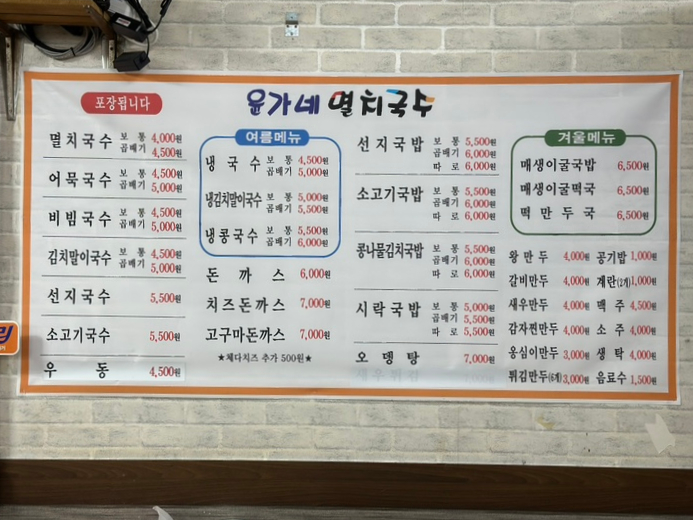 포장됩니다
윤가네 멸치국수
멸치국수 보통 4,000원
곱배기 4,500원
어묵국수 보통 4,500원
곱배기 5,000원
비빔국수 보통 4,500원
곱배기 5,000원
김치말이국수 보통 4,500원
곱배기 5,000원
선지국수 5,500원
소고기국수 5,500원
우동 4,500원
여름메뉴
냉국수 보통 4,500원
곱배기 5,000원
냉김치말이국수 보통 5,000원
곱배기 5,500원
냉콩국수 보통 5,500원
곱배기 6,000원
돈까스 6,000원
치즈돈까스 7,000원
고구마돈까스 7,000원
★체다치즈 추가 500원★
선지국밥 보통 5,500원
곱배기 6,000원
따로 6,000원
소고기국밥 보통 5,500원
곱배기 6,000원
따로 6,000원
콩나물김치국밥 보통 5,500원
곱배기 6,000원
따로 6,000원
시락국밥 보통 5,000원
곱배기 5,500원
따로 5,500원
오뎅탕 7,000원
새우튀김
겨울메뉴
매생이굴국밥 6,500원
매생이굴떡국 6,500원
떡만두국 6,500원
왕만두 4,000원 공기밥 1,000원
갈비만두 4,000원 계란(2개) 1,000원
새우만두 4,000원 맥주 4,500원
감자찐만두 4,000원 소주 4,000원
옹심이만두 3,000원 생탁 4,000원
튀김만두(6개) 3,000원 음료수 1,500원